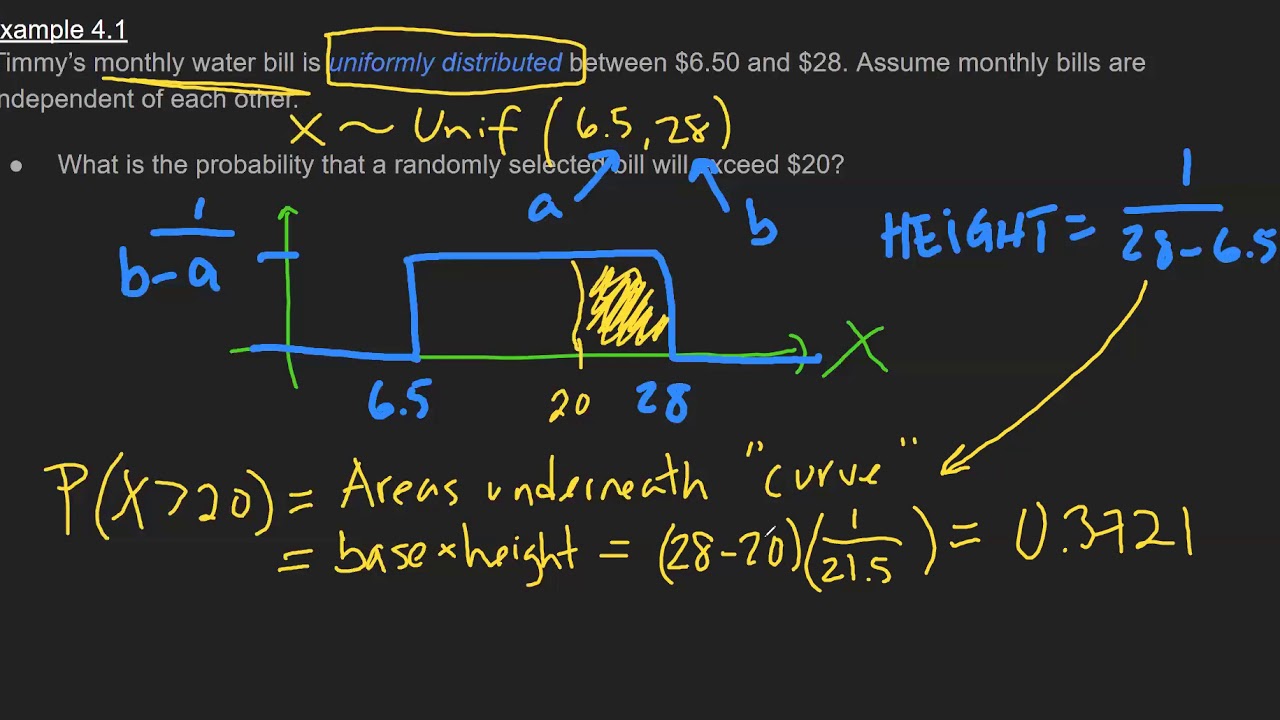 xample 4.1
Timmy's monthly water bill is uniformly distributed between $6.50 and $28. Assume monthly bills are
ndependent of each other.
X ~ Unif (6.5, 28)
● What is the probability that a randomly selected bill will exceed $20?
a
b
1
b-a
HEIGHT = 1
28-6.5
X
6.5 20 28
P(X>20) = Areas underneath "curve"
= base×height = (28-20)(1/21.5) = 0.3721